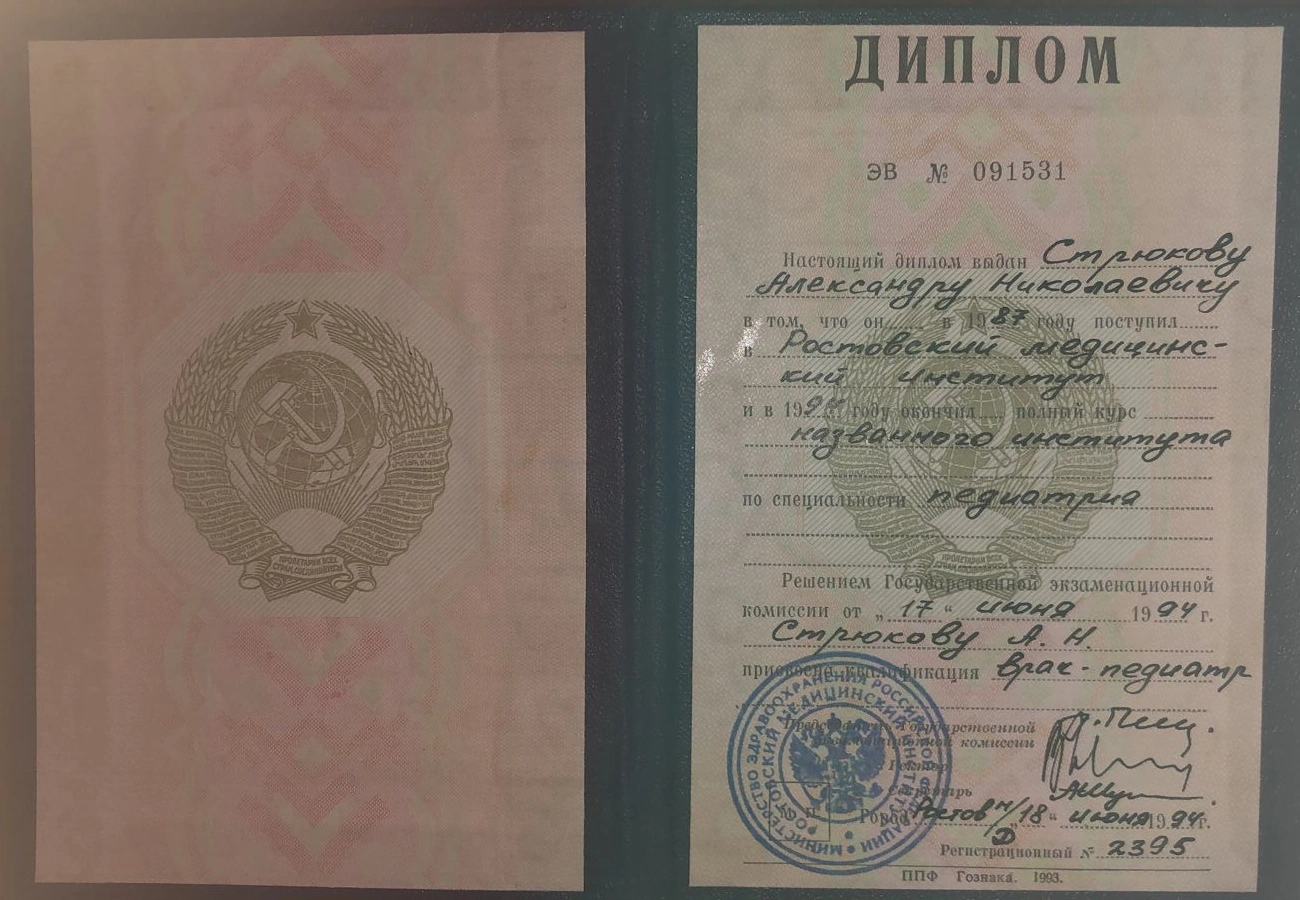 ПРОЛЕТАРИИ ВСЕХ
СТРАН, СОЕДИНЯЙТЕСЬ
ДИПЛОМ
ЭВ № 091531
Настоящий диплом выдан Стрюкову
Александру Николаевичу
в том, что он в 1987 году поступил
в Ростовский медицинс-
кий институт
и в 1994 году окончил полный курс
названного института
по специальности педиатрия
ПРОЛЕТАРИИ ВСЕХ
Решением Государственной экзаменационной
комиссии от „17“ июня 1994 г.
Стрюкову А. Н.
присвоена квалификация врач-педиатр
Председатель Государственной
экзаменационной комиссии
Ректор
Секретарь
Город Ростов н/Д „18“ июня 1994 г.
Регистрационный № 2395
МИНИСТЕРСТВО ЗДРАВООХРАНЕНИЯ РОССИЙСКОЙ ФЕДЕРАЦИИ
РОСТОВСКИЙ МЕДИЦИНСКИЙ ИНСТИТУТ
ППФ Гознака. 1993.